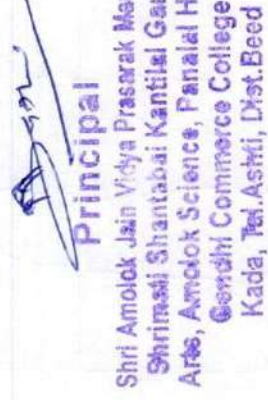 Principal
Shri Amolok Jain Vidya Prasarak Ma
Shrimati Shantabai Kantilal Ga
Arts, Amolok Science, Panalal H
Gandhi Commerce College
Kada, Tal.Ashti, Dist.Beed